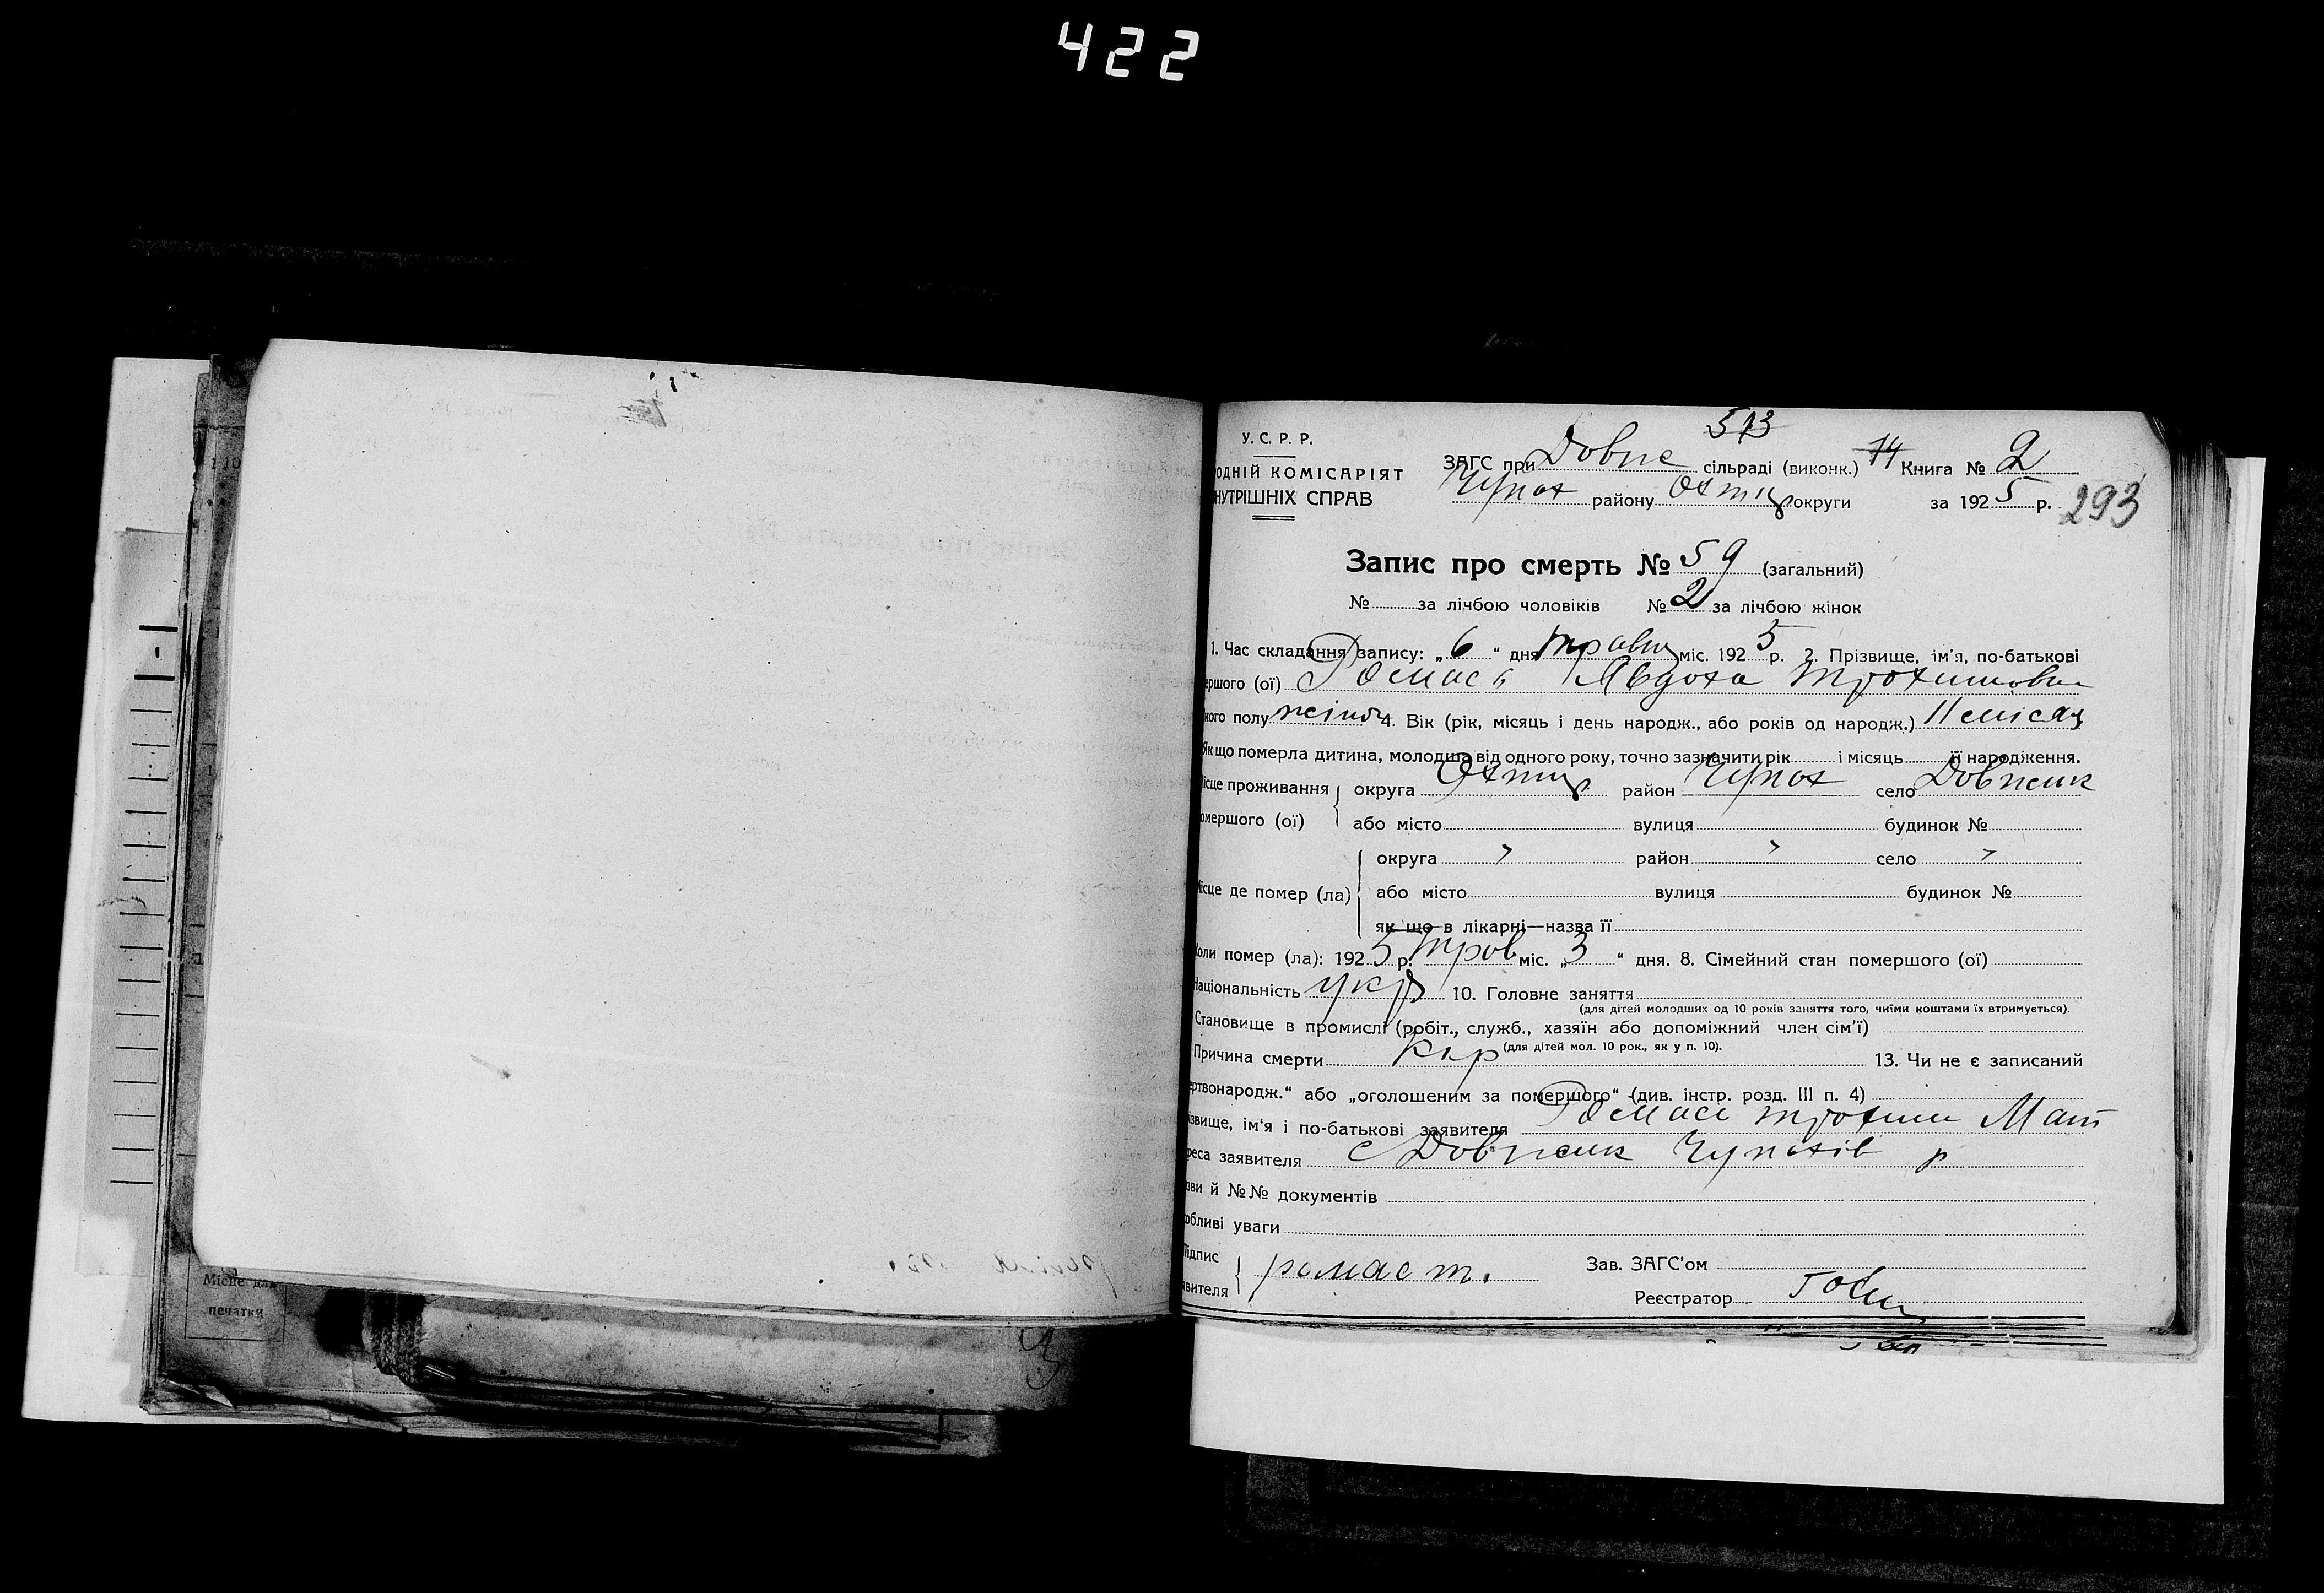 422
513
У. С. Р. Р.
ЗАГС при Довже сільраді (виконк.) 14 Книга № 2
ОДНІЙ КОМІСАРІЯТ
Чупах району Охтир округи за 1925 р. 293
НУТРІШНІХ СПРАВ
Запис про смерть № 59 (загальний)
№ за лічбою чоловіків № 2 за лічбою жінок
1. Час складання запису: „6“ дня травня міс. 1925 р. 2. Прізвище, ім'я, по-батькові
ершого (ої) Ромась Явдоха Трохимовна
кого полу жіноч 4. Вік (рік, місяць і день народж., або років од народж.) 11 місяц
Як що померла дитина, молодша від одного року, точно зазначити рік і місяць її народження.
ісце проживання округа Охтир район Чупах село Довжик
омершого (ої) або місто вулиця будинок №
округа " район " село "
ісце де помер (ла) або місто вулиця будинок №
як що в лікарні—назва її
Коли помер (ла): 1925 р. Трав міс. „3“ дня. 8. Сімейний стан помершого (ої)
Національність укр 10. Головне заняття
(для дітей молодших од 10 років заняття того, чиїми коштами їх втримується).
Становище в промислі (робіт., служб., хазяїн або допоміжний член сім'ї)
(для дітей мол. 10 рок., як у п. 10).
Причина смерти Кір 13. Чи не є записаний
ертвонародж.“ або „оголошеним за помершого“ (див. інстр. розд. III п. 4)
ізвище, ім'я і по-батькові заявителя Ромась Трохим Мат
реса заявителя с Довжик Чупахів р
зви й №№ документів
обливі уваги
Підпис
явителя ромас т.
Зав. ЗАГС'ом
Реєстратор
Місце для
печатки